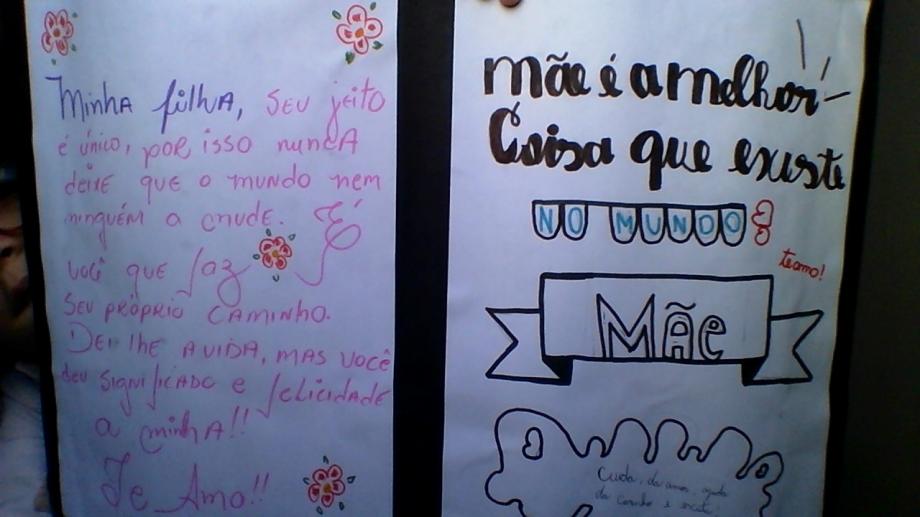 Minha filha, seu jeito
é único, por isso nunca
deixe que o mundo nem
ninguém a mude. É
você que faz
seu próprio caminho.
Dei lhe a vida, mas você
deu significado e felicidade
a minha!!
Te Amo!!
mãe é a melhor
Coisa que existe
NO MUNDO!
te amo!
Mãe
Cuida, da amor, ajuda
da carinho e